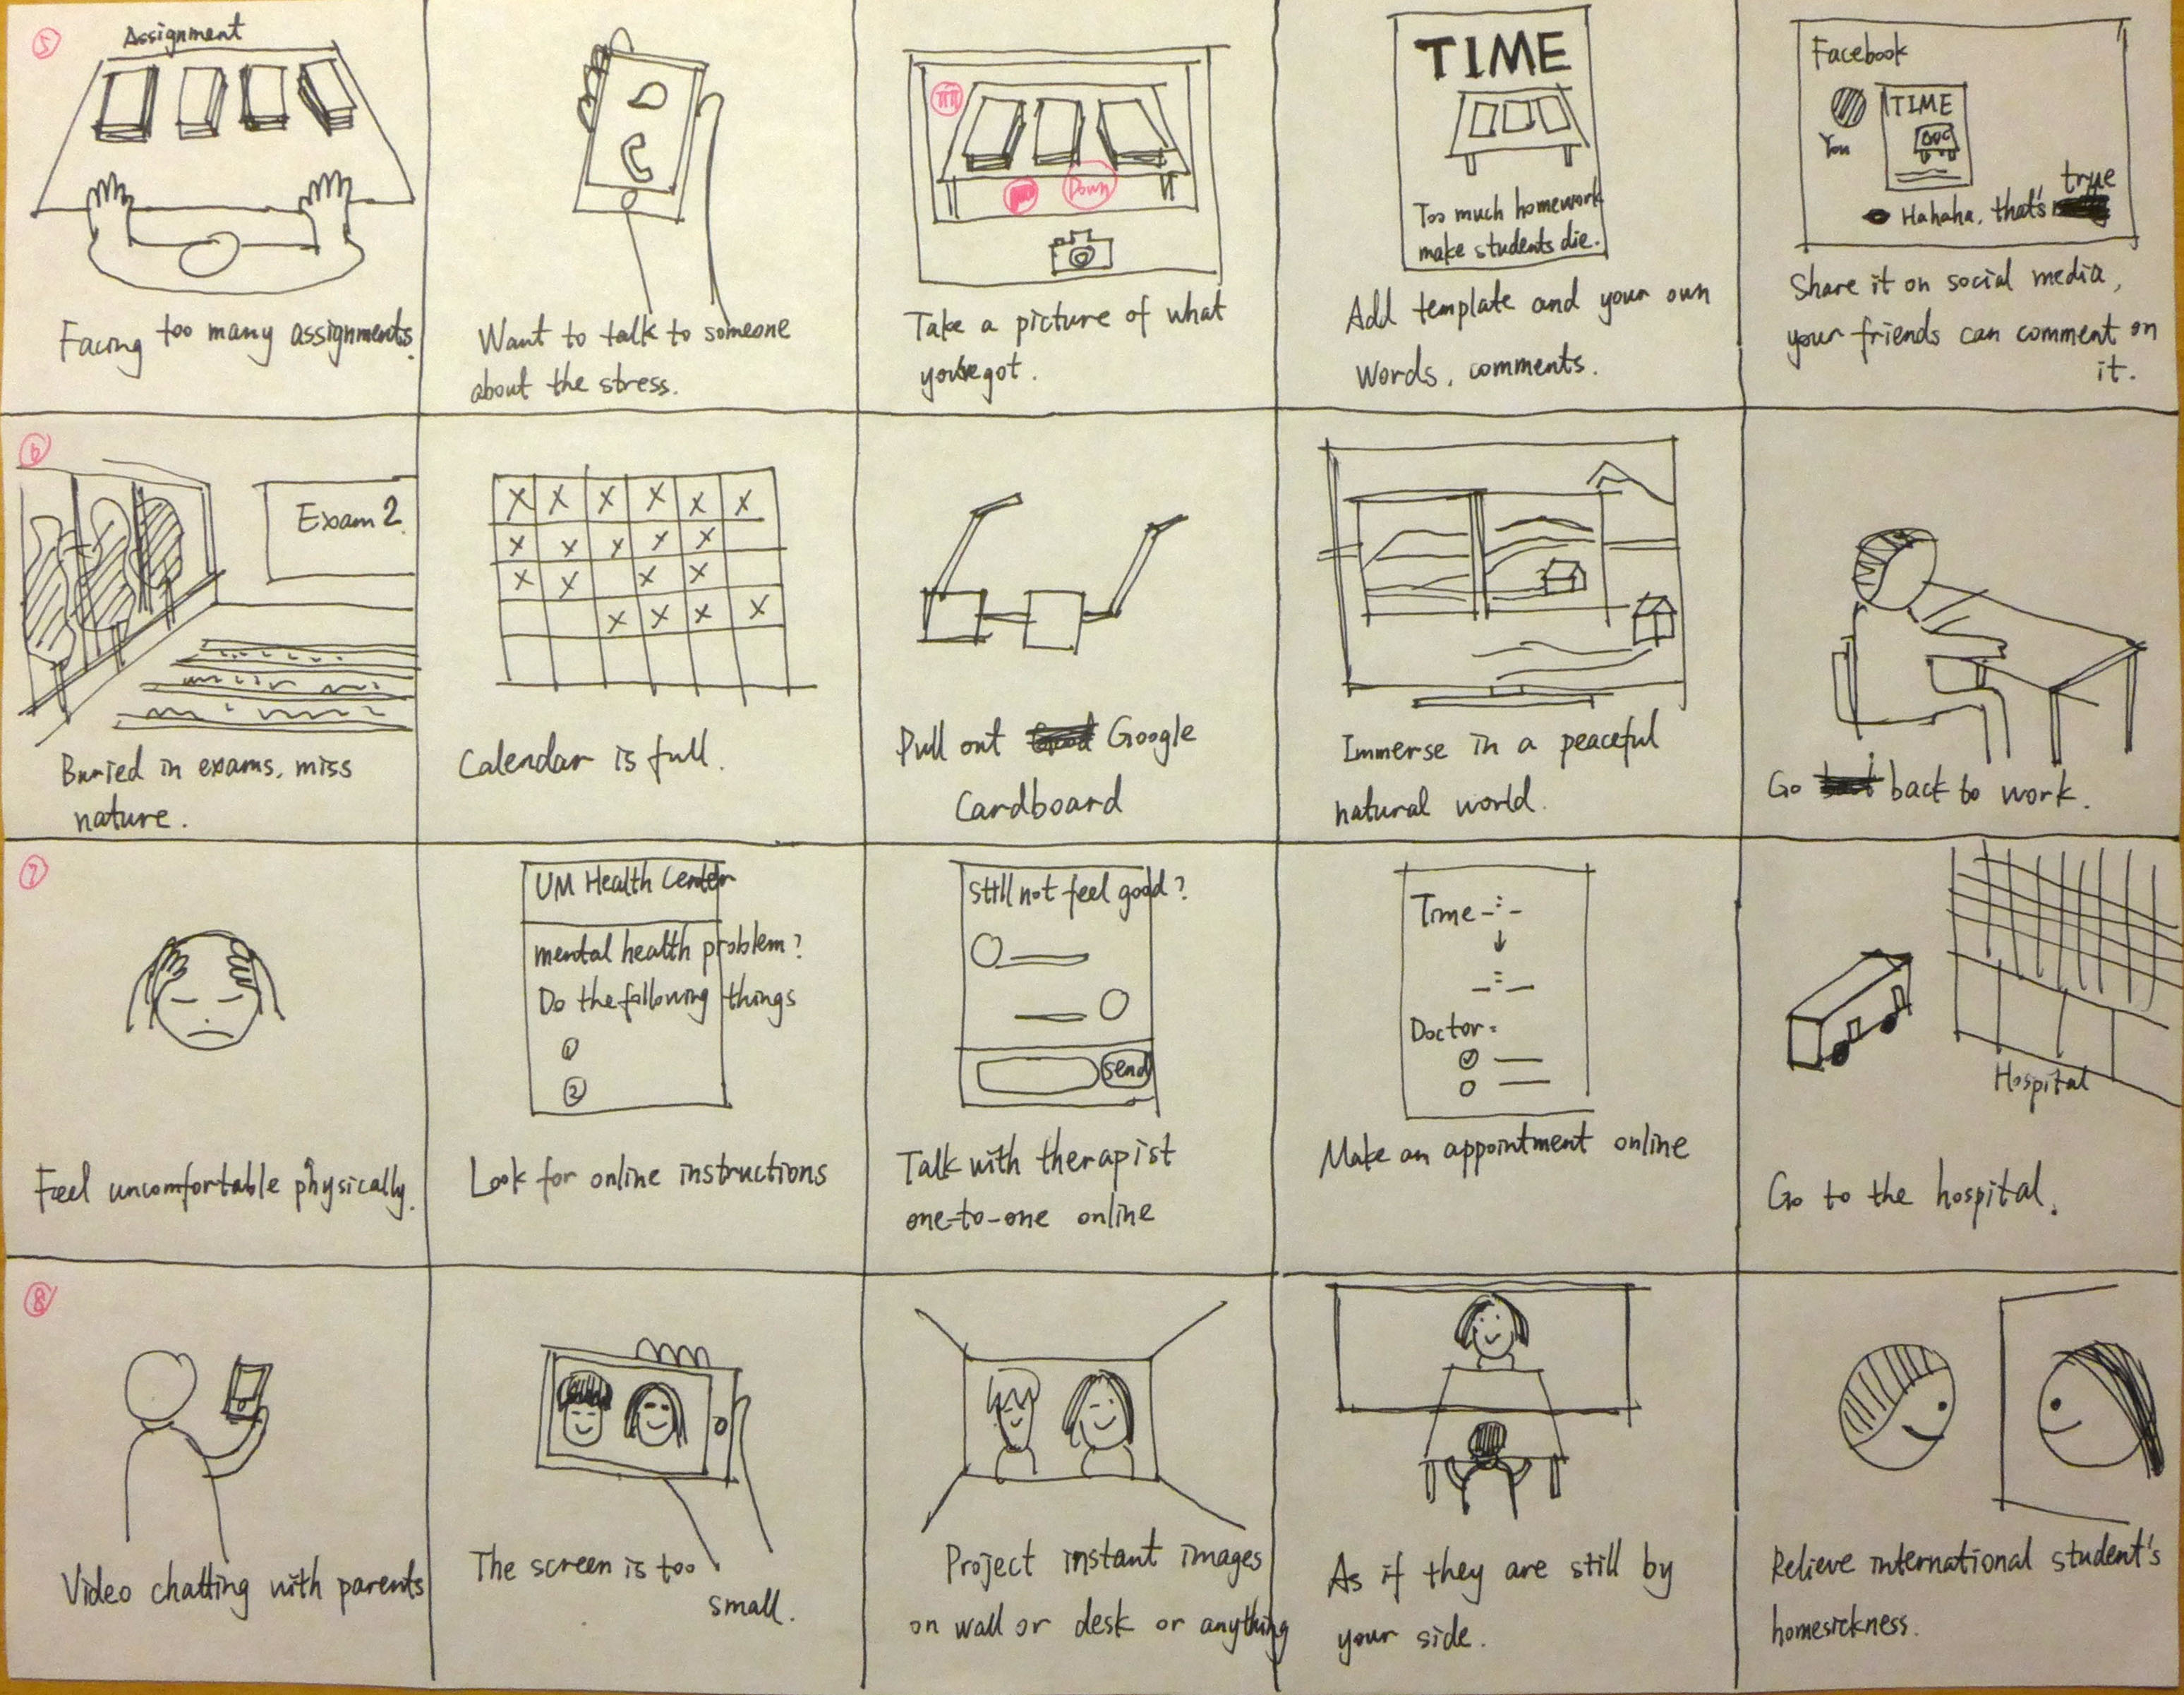 5
Assignment
Facing too many assignments.
Want to talk to someone
about the stress.
Down
Take a picture of what
you've got.
TIME
Too much homework
make students die.
Add template and your own
words, comments.
Facebook
You
TIME
true
Hahaha, that's
Share it on social media,
your friends can comment on
it.
6
Exam 2
Buried in exams, miss
nature.
X X X X X X
X X X X X
X X X X
X X X X
Calendar is full.
Pull out Google
Cardboard
Immerse in a peaceful
natural world.
Go back to work.
7
Feel uncomfortable physically.
UM Health Center
mental health problem?
Do the following things
1
2
Look for online instructions
Still not feel good?
send
Talk with therapist
one-to-one online
Time -:-
-:-
Doctor:
Make an appointment online
Hospital
Go to the hospital.
8
Video chatting with parents
The screen is too
small.
Project instant images
on wall or desk or anything
As if they are still by
your side.
Relieve international student's
homesickness.